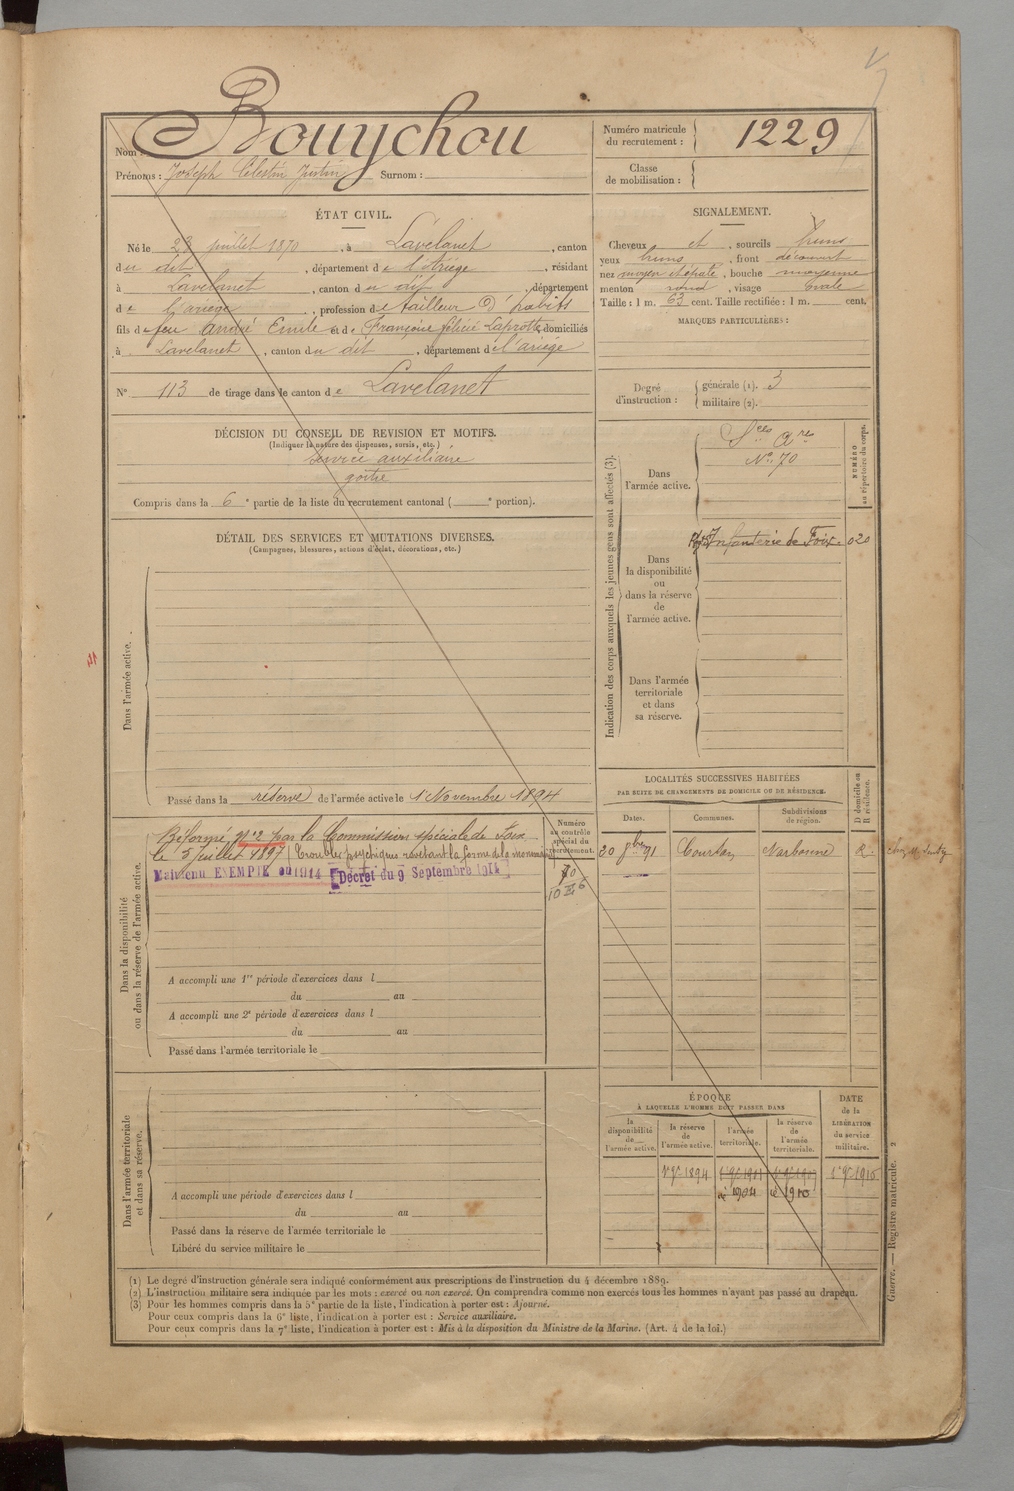 Nom : Bouychou
Prénoms : Joseph Célestin Justin Surnom :
Numéro matricule du recrutement : 1229
Classe de mobilisation :
ÉTAT CIVIL.
Né le 23 juillet 1870, à Lavelanet, canton
du dit, département de l'Ariège, résidant
à Lavelanet, canton du dit, département
de l'ariège, profession de tailleur d'habits
fils de feu André Emile et de Françoise félicié Laprotte, domiciliés
à Lavelanet, canton du dit, département de l'ariège
N° 113 de tirage dans le canton de Lavelanet
SIGNALEMENT.
Cheveux et, sourcils bruns
yeux bruns, front découvert
nez moyen et épaté, bouche moyenne
menton rond, visage ovale
Taille : 1 m. 63 cent. Taille rectifiée : 1 m. cent.
MARQUES PARTICULIÈRES :
Degré d'instruction : générale (1). 3
militaire (2).
DÉCISION DU CONSEIL DE REVISION ET MOTIFS.
(Indiquer la nature des dispenses, sursis, etc.)
service auxiliaire
goître
Compris dans la 6e partie de la liste du recrutement cantonal ( e portion).
DÉTAIL DES SERVICES ET MUTATIONS DIVERSES.
(Campagnes, blessures, actions d'éclat, décorations, etc.)
Dans l'armée active.
Passé dans la réserve de l'armée active le 1er Novembre 1894
Indication des corps auxquels les jeunes gens sont affectés (3).
NUMÉRO au répertoire du corps.
Dans l'armée active.
Sces Ares
N° 70
Dans la disponibilité ou dans la réserve de l'armée active.
Infanterie de Foix. 020
Dans l'armée territoriale et dans sa réserve.
LOCALITÉS SUCCESSIVES HABITÉES
PAR SUITE DE CHANGEMENTS DE DOMICILE OU DE RÉSIDENCE.
Dates. Communes. Subdivisions de région. D. domicile ou R. résidence.
20 9bre 91 Coursan Narbonne R.
Dans la disponibilité ou dans la réserve de l'armée active.
Numéro au contrôle spécial du recrutement.
Réformé N°2 par la Commission spéciale de Foix
le 5 juillet 1897 (Troubles psychiques revêtant la forme de la
Maintenu EXEMPTÉ en 1914 Décret du 9 Septembre 1914
A accompli une 1re période d'exercices dans l
du au
A accompli une 2e période d'exercices dans l
du au
Passé dans l'armée territoriale le
Dans l'armée territoriale et dans sa réserve.
A accompli une période d'exercices dans l
du au
Passé dans la réserve de l'armée territoriale le
Libéré du service militaire le
ÉPOQUE
À LAQUELLE L'HOMME DOIT PASSER DANS
la disponibilité de l'armée active.
la réserve de l'armée active.
l'armée territoriale.
la réserve de l'armée territoriale.
DATE de la LIBÉRATION du service militaire.
1er 9bre 1894
1904
1910
1916
(1) Le degré d'instruction générale sera indiqué conformément aux prescriptions de l'instruction du 4 décembre 1889.
(2) L'instruction militaire sera indiquée par les mots : exercé ou non exercé. On comprendra comme non exercés tous les hommes n'ayant pas passé au drapeau.
(3) Pour les hommes compris dans la 5e partie de la liste, l'indication à porter est : Ajourné.
Pour ceux compris dans la 6e liste, l'indication à porter est : Service auxiliaire.
Pour ceux compris dans la 7e liste, l'indication à porter est : Mis à la disposition du Ministre de la Marine. (Art. 4 de la loi.)
Guerre. — Registre matricule. 2